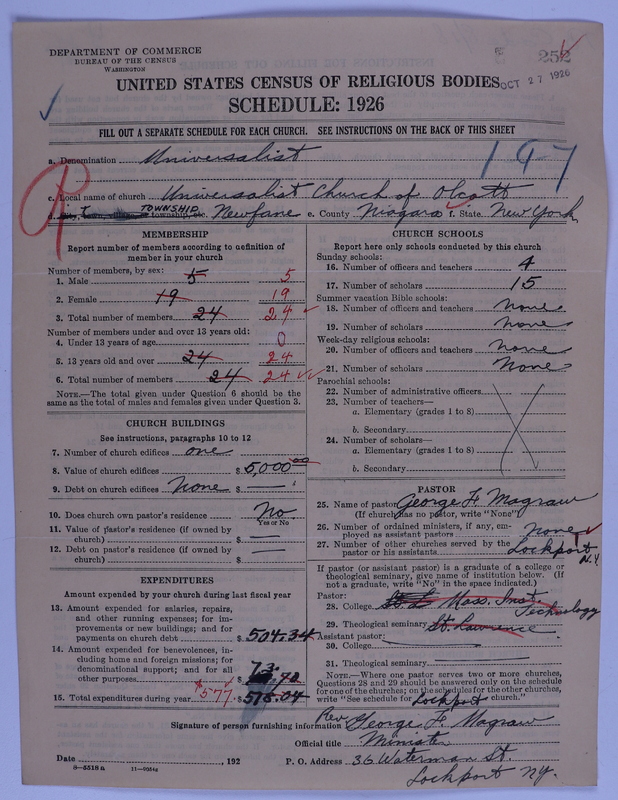 DEPARTMENT OF COMMERCE
BUREAU OF THE CENSUS
WASHINGTON
252
OCT 27 1926
UNITED STATES CENSUS OF RELIGIOUS BODIES
SCHEDULE: 1926
FILL OUT A SEPARATE SCHEDULE FOR EACH CHURCH. SEE INSTRUCTIONS ON THE BACK OF THIS SHEET
197
a. Denomination Universalist
c. Local name of church Universalist Church of Olcott
d. TOWNSHIP Newfane e. County Niagara f. State New York
MEMBERSHIP
Report number of members according to definition of
member in your church
Number of members, by sex:
1. Male 5 5
2. Female 19 19
3. Total number of members 24 24
Number of members under and over 13 years old:
4. Under 13 years of age 0
5. 13 years old and over 24 24
6. Total number of members 24 24
NOTE.—The total given under Question 6 should be the
same as the total of males and females given under Question 3.
CHURCH BUILDINGS
See instructions, paragraphs 10 to 12
7. Number of church edifices one
8. Value of church edifices $ 5,000 00
9. Debt on church edifices None $
10. Does church own pastor's residence? No
Yes or No
11. Value of pastor's residence (if owned by
church) $
12. Debt on pastor's residence (if owned by
church) $
EXPENDITURES
Amount expended by your church during last fiscal year
13. Amount expended for salaries, repairs,
and other running expenses; for im-
provements or new buildings; and for
payments on church debt $ 504.34
14. Amount expended for benevolences, in-
cluding home and foreign missions; for
denominational support; and for all
other purposes $ 73.
15. Total expenditures during year $577 $ 578.04
CHURCH SCHOOLS
Report here only schools conducted by this church
Sunday schools:
16. Number of officers and teachers 4
17. Number of scholars 15
Summer vacation Bible schools:
18. Number of officers and teachers none
19. Number of scholars none
Week-day religious schools:
20. Number of officers and teachers none
21. Number of scholars None
Parochial schools:
22. Number of administrative officers
23. Number of teachers—
a. Elementary (grades 1 to 8)
b. Secondary
24. Number of scholars—
a. Elementary (grades 1 to 8)
b. Secondary
PASTOR
25. Name of pastor George F. Magraw
(If church has no pastor, write "None")
26. Number of ordained ministers, if any, em-
ployed as assistant pastors none
27. Number of other churches served by the
pastor or his assistants Lockport N.Y.
If pastor (or assistant pastor) is a graduate of a college or
theological seminary, give name of institution below. (If
not a graduate, write "No" in the space indicated.)
Pastor:
28. College Mass. Inst. Technology
29. Theological seminary St. Lawrence
Assistant pastor:
30. College
31. Theological seminary
NOTE.—Where one pastor serves two or more churches,
Questions 28 and 29 should be answered only on the schedule
for one of the churches; on the schedules for the other churches,
write "See schedule for Lockport church."
Signature of person furnishing information Rev George F. Magraw
Official title Minister
Date , 192 P. O. Address 36 Waterman St.
Lockport N.Y.
8-5518a 11-9254a